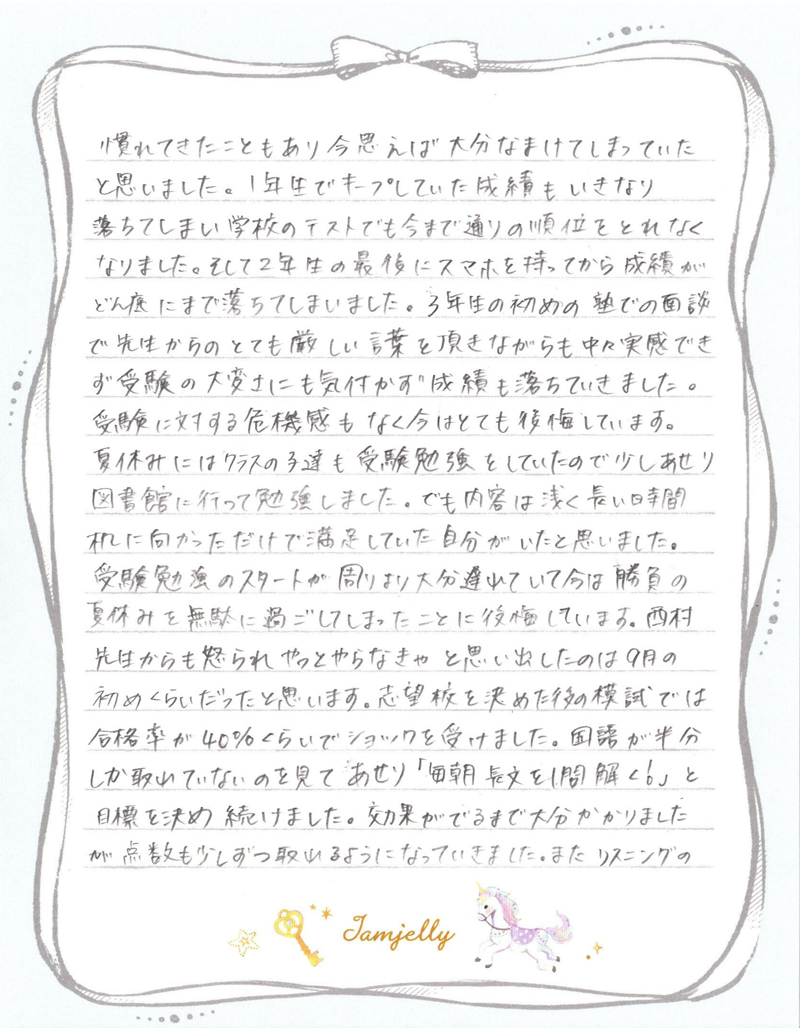 慣れてきたこともあり今思えば大分なまけてしまっていた
と思いました。1年生でキープしていた成績もいきなり
落ちてしまい学校のテストでも今まで通りの順位をとれなく
なりました。そして2年生の最後にスマホを持ってから成績が
どん底にまで落ちてしまいました。3年生の初めの塾での面談
で先生からのとても厳しい言葉を頂きながらも中々実感でき
ず受験の大変さにも気付かず成績も落ちていきました。
受験に対する危機感もなく今はとても後悔しています。
夏休みにはクラスの子達も受験勉強をしていたので少しあせり
図書館に行って勉強しました。でも内容は浅く長い時間
机に向かっただけで満足していた自分がいたと思いました。
受験勉強のスタートが周りより大分遅れていて今は勝負の
夏休みを無駄に過ごしてしまったことに後悔しています。西村
先生からも怒られやっとやらなきゃと思い出したのは9月の
初めくらいだったと思います。志望校を決めた後の模試では
合格率が40%くらいでショックを受けました。国語が半分
しか取れていないのを見てあせり「毎朝長文を1問解く!」と
目標を決め続けました。効果がでるまで大分かかりました
が点数も少しずつ取れるようになっていきました。またリスニングの
Jamjelly